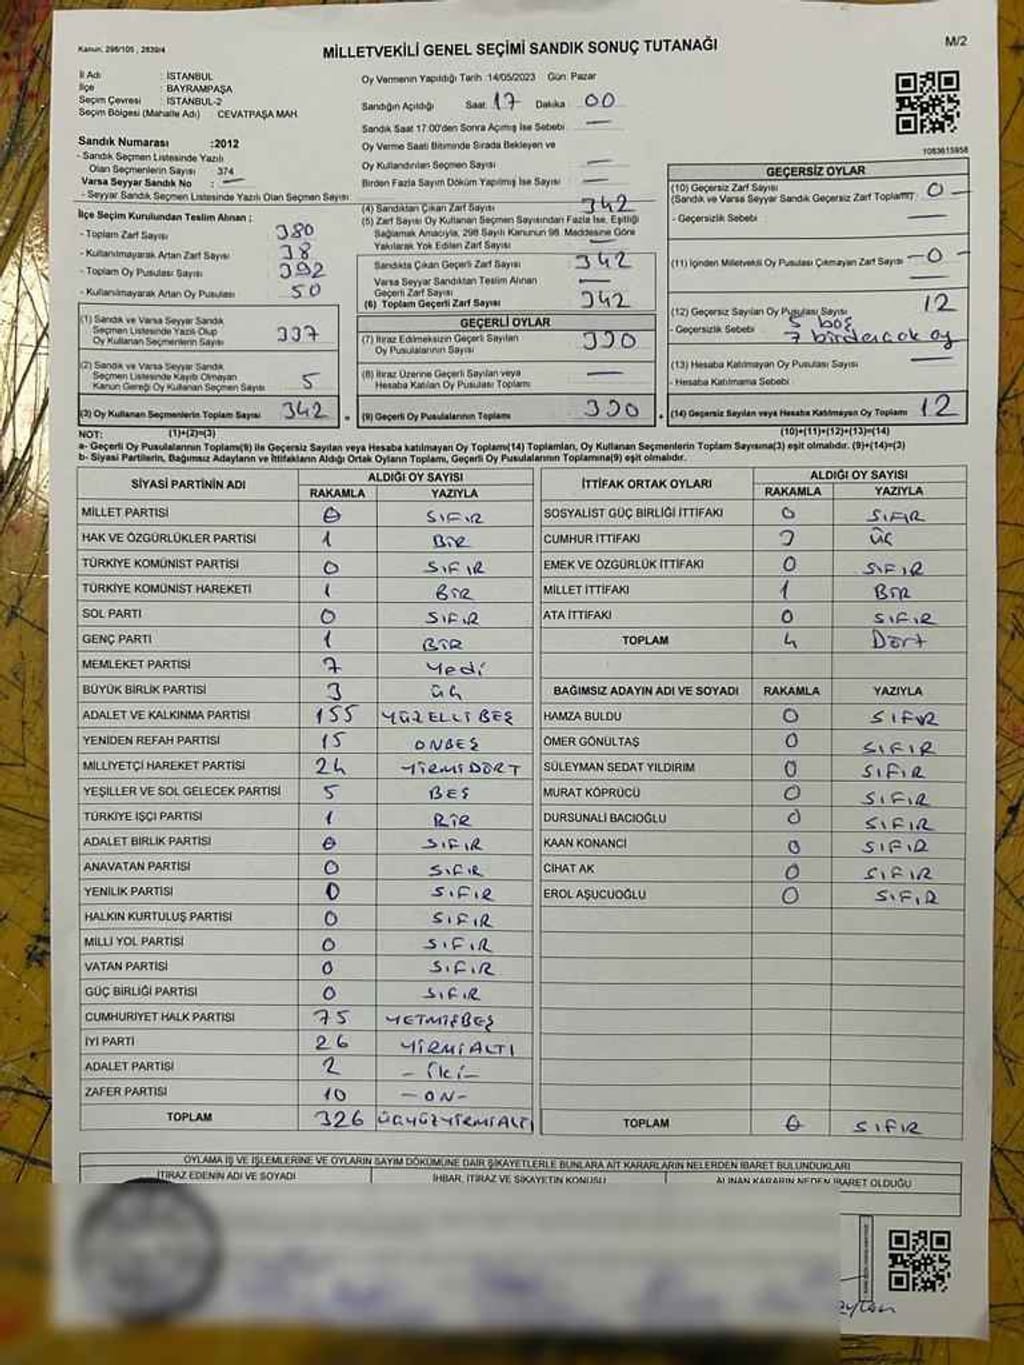 Kanun: 298/105 , 2839/4
MİLLETVEKİLİ GENEL SEÇİMİ SANDIK SONUÇ TUTANAĞI
M/2
İl Adı : İSTANBUL
İlçe : BAYRAMPAŞA
Seçim Çevresi : İSTANBUL-2
Seçim Bölgesi (Mahalle Adı) CEVATPAŞA MAH.
Sandık Numarası :2012
- Sandık Seçmen Listesinde Yazılı
Olan Seçmenlerin Sayısı 374
Varsa Seyyar Sandık No : —
- Seyyar Sandık Seçmen Listesinde Yazılı Olan Seçmen Sayısı:
Oy Vermenin Yapıldığı Tarih :14/05/2023 Gün: Pazar
Sandığın Açıldığı Saat: 17 Dakika 00
Sandık Saat 17:00'den Sonra Açılmış İse Sebebi —
Oy Verme Saati Bitiminde Sırada Bekleyen ve
Oy Kullandırılan Seçmen Sayısı —
Birden Fazla Sayım Döküm Yapılmış İse Sayısı —
1083615958
İlçe Seçim Kurulundan Teslim Alınan ;
- Toplam Zarf Sayısı 380
- Kullanılmayarak Artan Zarf Sayısı 38
- Toplam Oy Pusulası Sayısı 392
- Kullanılmayarak Artan Oy Pusulası 50
(1) Sandık ve Varsa Seyyar Sandık
Seçmen Listesinde Yazılı Olup
Oy Kullanan Seçmenlerin Sayısı 337
(2) Sandık ve Varsa Seyyar Sandık
Seçmen Listesinde Kayıtlı Olmayan
Kanun Gereği Oy Kullanan Seçmen Sayısı 5
(3) Oy Kullanan Seçmenlerin Toplam Sayısı 342
(1)+(2)=(3)
(4) Sandıktan Çıkan Zarf Sayısı 342
(5) Zarf Sayısı Oy Kullanan Seçmen Sayısından Fazla İse, Eşitliği
Sağlamak Amacıyla, 298 Sayılı Kanunun 98. Maddesine Göre
Yakılarak Yok Edilen Zarf Sayısı —
Sandıkta Çıkan Geçerli Zarf Sayısı 342
Varsa Seyyar Sandıktan Teslim Alınan
Geçerli Zarf Sayısı —
(6) Toplam Geçerli Zarf Sayısı 342
GEÇERLİ OYLAR
(7) İtiraz Edilmeksizin Geçerli Sayılan
Oy Pusulalarının Sayısı 330
(8) İtiraz Üzerine Geçerli Sayılan veya
Hesaba Katılan Oy Pusulası Toplamı —
(9) Geçerli Oy Pusulalarının Toplamı 330
GEÇERSİZ OYLAR
(10) Geçersiz Zarf Sayısı
(Sandık ve Varsa Seyyar Sandık Geçersiz Zarf Toplamı) 0 —
- Geçersizlik Sebebi —
(11) İçinden Milletvekili Oy Pusulası Çıkmayan Zarf Sayısı —0—
(12) Geçersiz Sayılan Oy Pusulası Sayısı 12
- Geçersizlik Sebebi 5 boş
7 birdençok oy
(13) Hesaba Katılmayan Oy Pusulası Sayısı —
- Hesaba Katılmama Sebebi
(14) Geçersiz Sayılan veya Hesaba Katılmayan Oy Toplamı 12
(10)+(11)+(12)+(13)=(14)
NOT:
a- Geçerli Oy Pusulalarının Toplamı(9) ile Geçersiz Sayılan veya Hesaba katılmayan Oy Toplamı(14) Toplamları, Oy Kullanan Seçmenlerin Toplam Sayısına(3) eşit olmalıdır. (9)+(14)=(3)
b- Siyasi Partilerin, Bağımsız Adayların ve İttifakların Aldığı Ortak Oyların Toplamı, Geçerli Oy Pusulalarının Toplamına(9) eşit olmalıdır.
SİYASİ PARTİNİN ADI ALDIĞI OY SAYISI
RAKAMLA YAZIYLA
MİLLET PARTİSİ 0 SIFIR
HAK VE ÖZGÜRLÜKLER PARTİSİ 1 BİR
TÜRKİYE KOMÜNİST PARTİSİ 0 SIFIR
TÜRKİYE KOMÜNİST HAREKETİ 1 BİR
SOL PARTİ 0 SIFIR
GENÇ PARTİ 1 BİR
MEMLEKET PARTİSİ 7 Yedi
BÜYÜK BİRLİK PARTİSİ 3 üç
ADALET VE KALKINMA PARTİSİ 155 YÜZELLİBEŞ
YENİDEN REFAH PARTİSİ 15 ONBEŞ
MİLLİYETÇİ HAREKET PARTİSİ 24 YİRMİDÖRT
YEŞİLLER VE SOL GELECEK PARTİSİ 5 BEŞ
TÜRKİYE İŞÇİ PARTİSİ 1 BİR
ADALET BİRLİK PARTİSİ 0 SIFIR
ANAVATAN PARTİSİ 0 SIFIR
YENİLİK PARTİSİ 0 SIFIR
HALKIN KURTULUŞ PARTİSİ 0 SIFIR
MİLLİ YOL PARTİSİ 0 SIFIR
VATAN PARTİSİ 0 SIFIR
GÜÇ BİRLİĞİ PARTİSİ 0 SIFIR
CUMHURİYET HALK PARTİSİ 75 YETMİŞBEŞ
İYİ PARTİ 26 YİRMİALTI
ADALET PARTİSİ 2 - İki -
ZAFER PARTİSİ 10 - ON -
TOPLAM 326 ÜÇYÜZYİRMİALTI
İTTİFAK ORTAK OYLARI ALDIĞI OY SAYISI
RAKAMLA YAZIYLA
SOSYALİST GÜÇ BİRLİĞİ İTTİFAKI 0 SIFIR
CUMHUR İTTİFAKI 3 üç
EMEK VE ÖZGÜRLÜK İTTİFAKI 0 SIFIR
MİLLET İTTİFAKI 1 BİR
ATA İTTİFAKI 0 SIFIR
TOPLAM 4 Dört
BAĞIMSIZ ADAYIN ADI VE SOYADI RAKAMLA YAZIYLA
HAMZA BULDU 0 SIFIR
ÖMER GÖNÜLTAŞ 0 SIFIR
SÜLEYMAN SEDAT YILDIRIM 0 SIFIR
MURAT KÖPRÜCÜ 0 SIFIR
DURSUNALİ BACIOĞLU 0 SIFIR
KAAN KONANCİ 0 SIFIR
CİHAT AK 0 SIFIR
EROL AŞUCUOĞLU 0 SIFIR
TOPLAM 0 SIFIR
OYLAMA İŞ VE İŞLEMLERİNE VE OYLARIN SAYIM DÖKÜMÜNE DAİR ŞİKAYETLERLE BUNLARA AİT KARARLARIN NELERDEN İBARET BULUNDUKLARI
İTİRAZ EDENİN ADI VE SOYADI İHBAR, İTİRAZ VE ŞİKAYETİN KONUSU ALINAN KARARIN NEDEN İBARET OLDUĞU